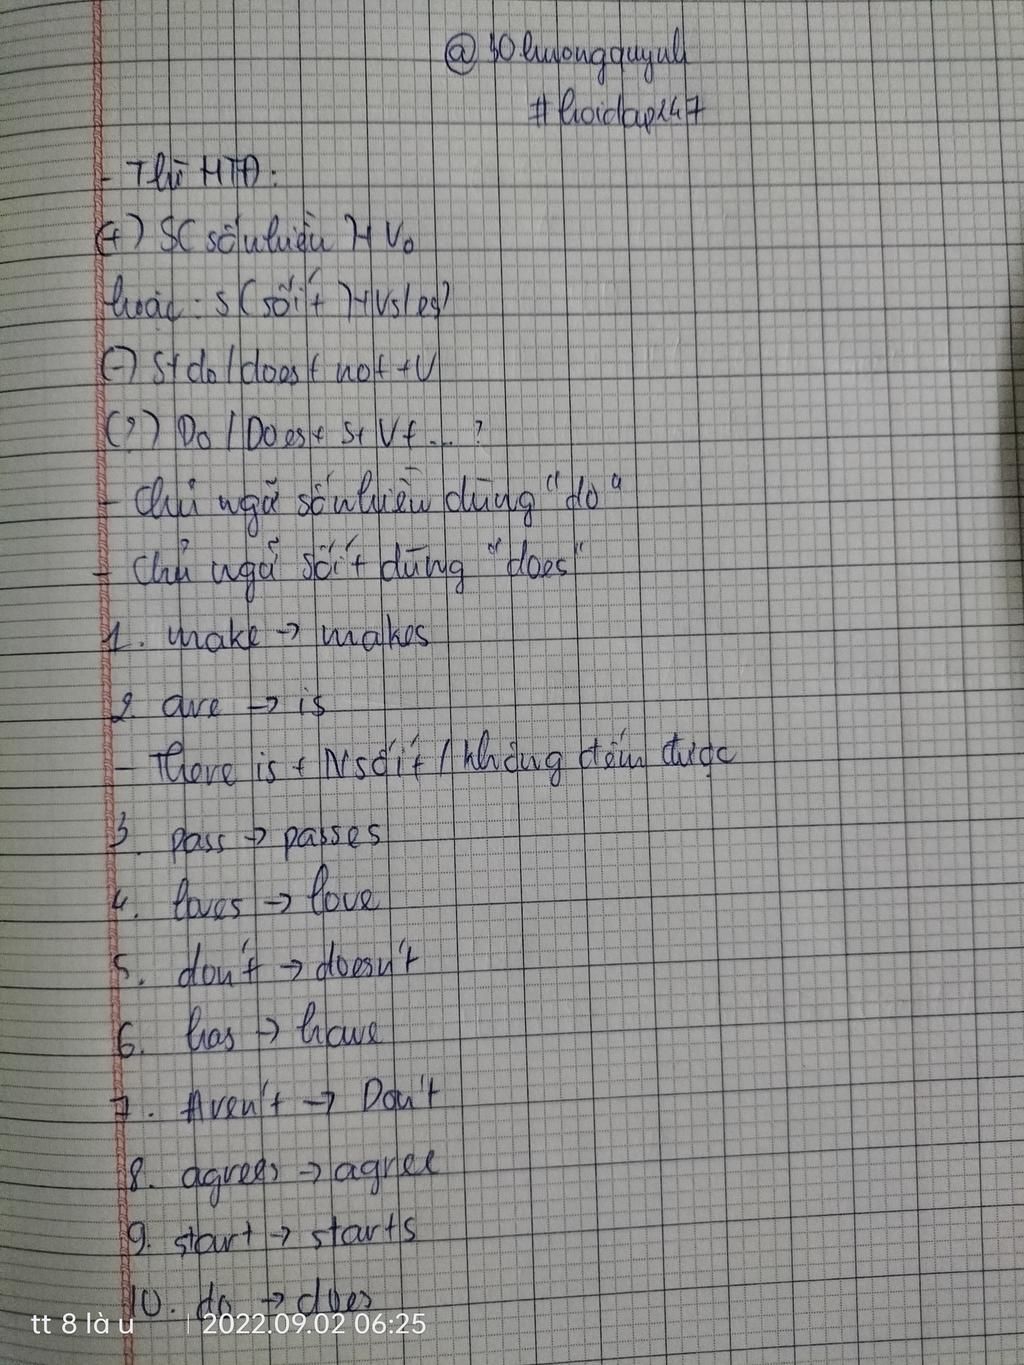 @ 30huongquynh
#hoidap247
- Thì HTĐ:
(+) S( số nhiều ) + V₀
hoặc : S( số ít ) + Vs/es
(-) S + do/does + not + V
(?) Do / Does + S + V + ... ?
- Chủ ngữ số nhiều dùng "do"
- Chủ ngữ số ít dùng "does"
1. make → makes
2. are → is
- There is + N số ít / không đếm được
3. pass → passes
4. loves → love
5. don't → doesn't
6. has → have
7. Aren't → Don't
8. agrees → agree
9. start → starts
10. do → does
tt 8 là u | 2022.09.02 06:25